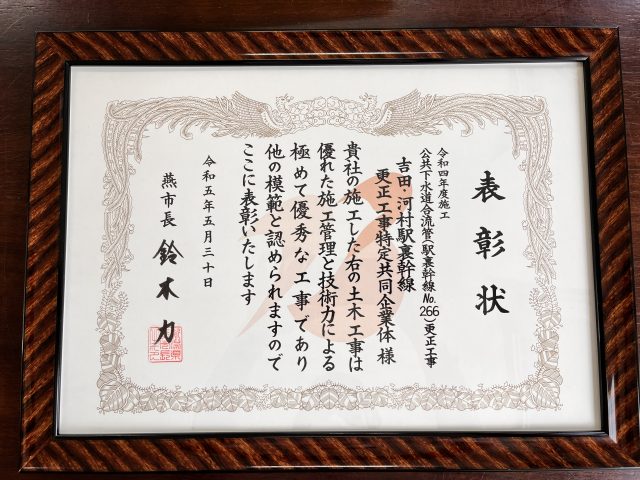 表彰状
令和四年度施工
公共下水道合流管(駅裏幹線No.266)更正工事
吉田・河村駅裏幹線
更正工事特定共同企業体 様
貴社の施工した右の土木工事は
優れた施工管理と技術力による
極めて優秀な工事であり
他の模範と認められますので
ここに表彰いたします
令和五年五月三十日
燕市長 鈴木力